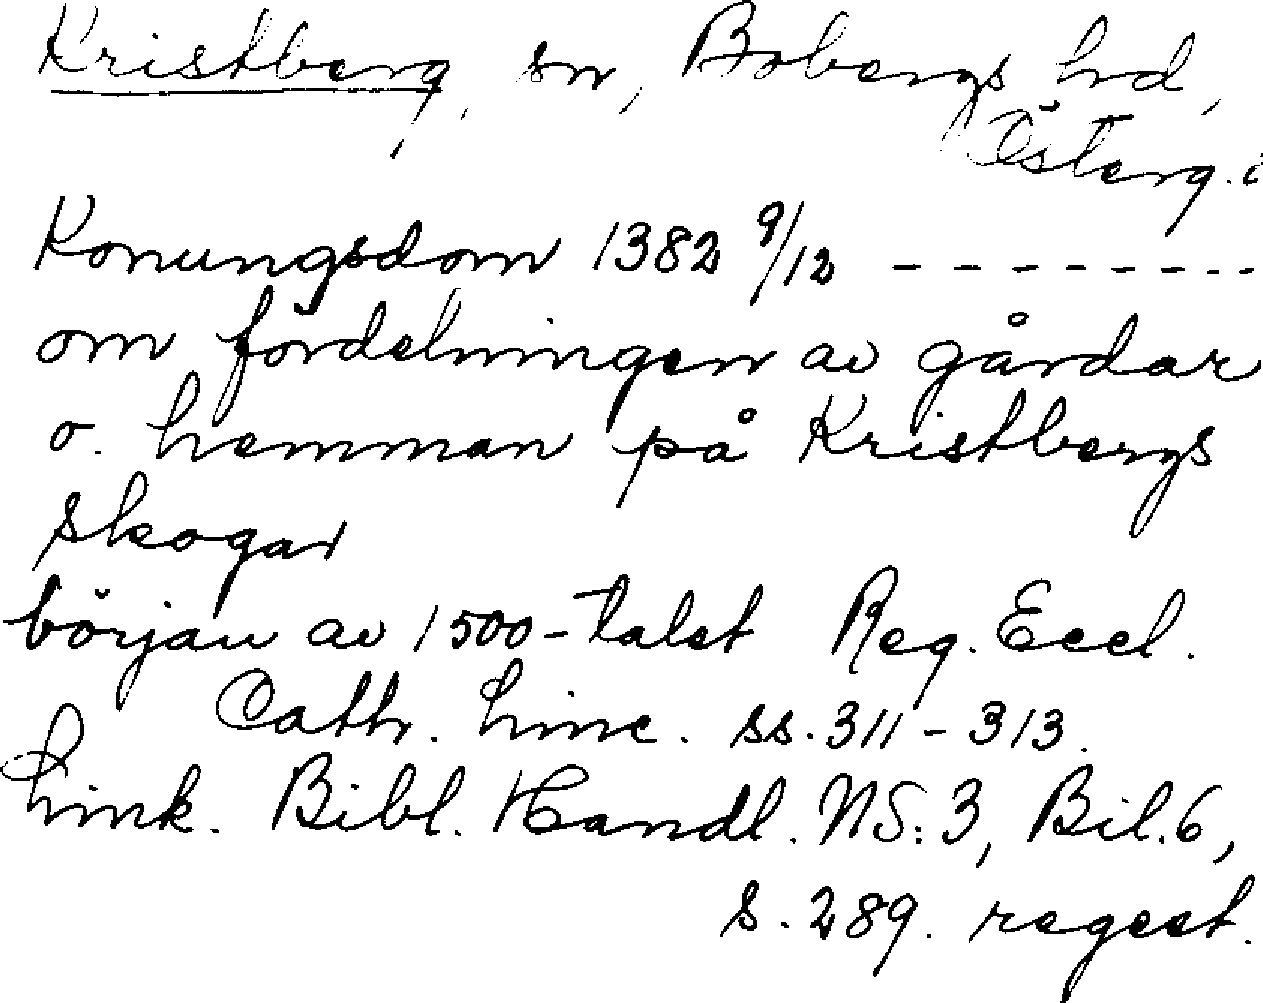 Kristberg, sn, Bobergs hd,
Österg.
Konungsdom 1382 9/12 - - - - - - - -
om fördelningen av gårdar
o. hemman på Kristbergs
skogar
början av 1500-talet Reg. Eccl.
Cath. Linc. ss. 311-313.
Link. Bibl. Handl. NS:3, Bil.6,
s. 289. regest.